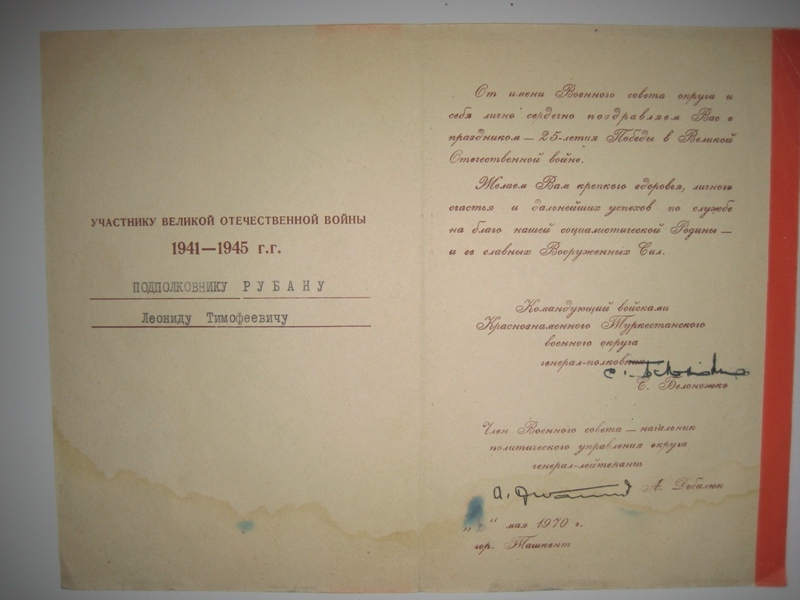 УЧАСТНИКУ ВЕЛИКОЙ ОТЕЧЕСТВЕННОЙ ВОЙНЫ
1941—1945 г.г.
ПОДПОЛКОВНИКУ РУБАНУ
Леониду Тимофеевичу
От имени Военного совета округа и
себя лично сердечно поздравляем Вас с
праздником — 25-летия Победы в Великой
Отечественной войне.
Желаем Вам крепкого здоровья, личного
счастья и дальнейших успехов по службе
на благо нашей социалистической Родины —
и ее славных Вооруженных Сил.
Командующий войсками
Краснознаменного Туркестанского
военного округа
генерал-полковник
С. Белоножко
Член Военного совета — начальник
политического управления округа
генерал-лейтенант
А. Дебалюк
мая 1970 г.
гор. Ташкент